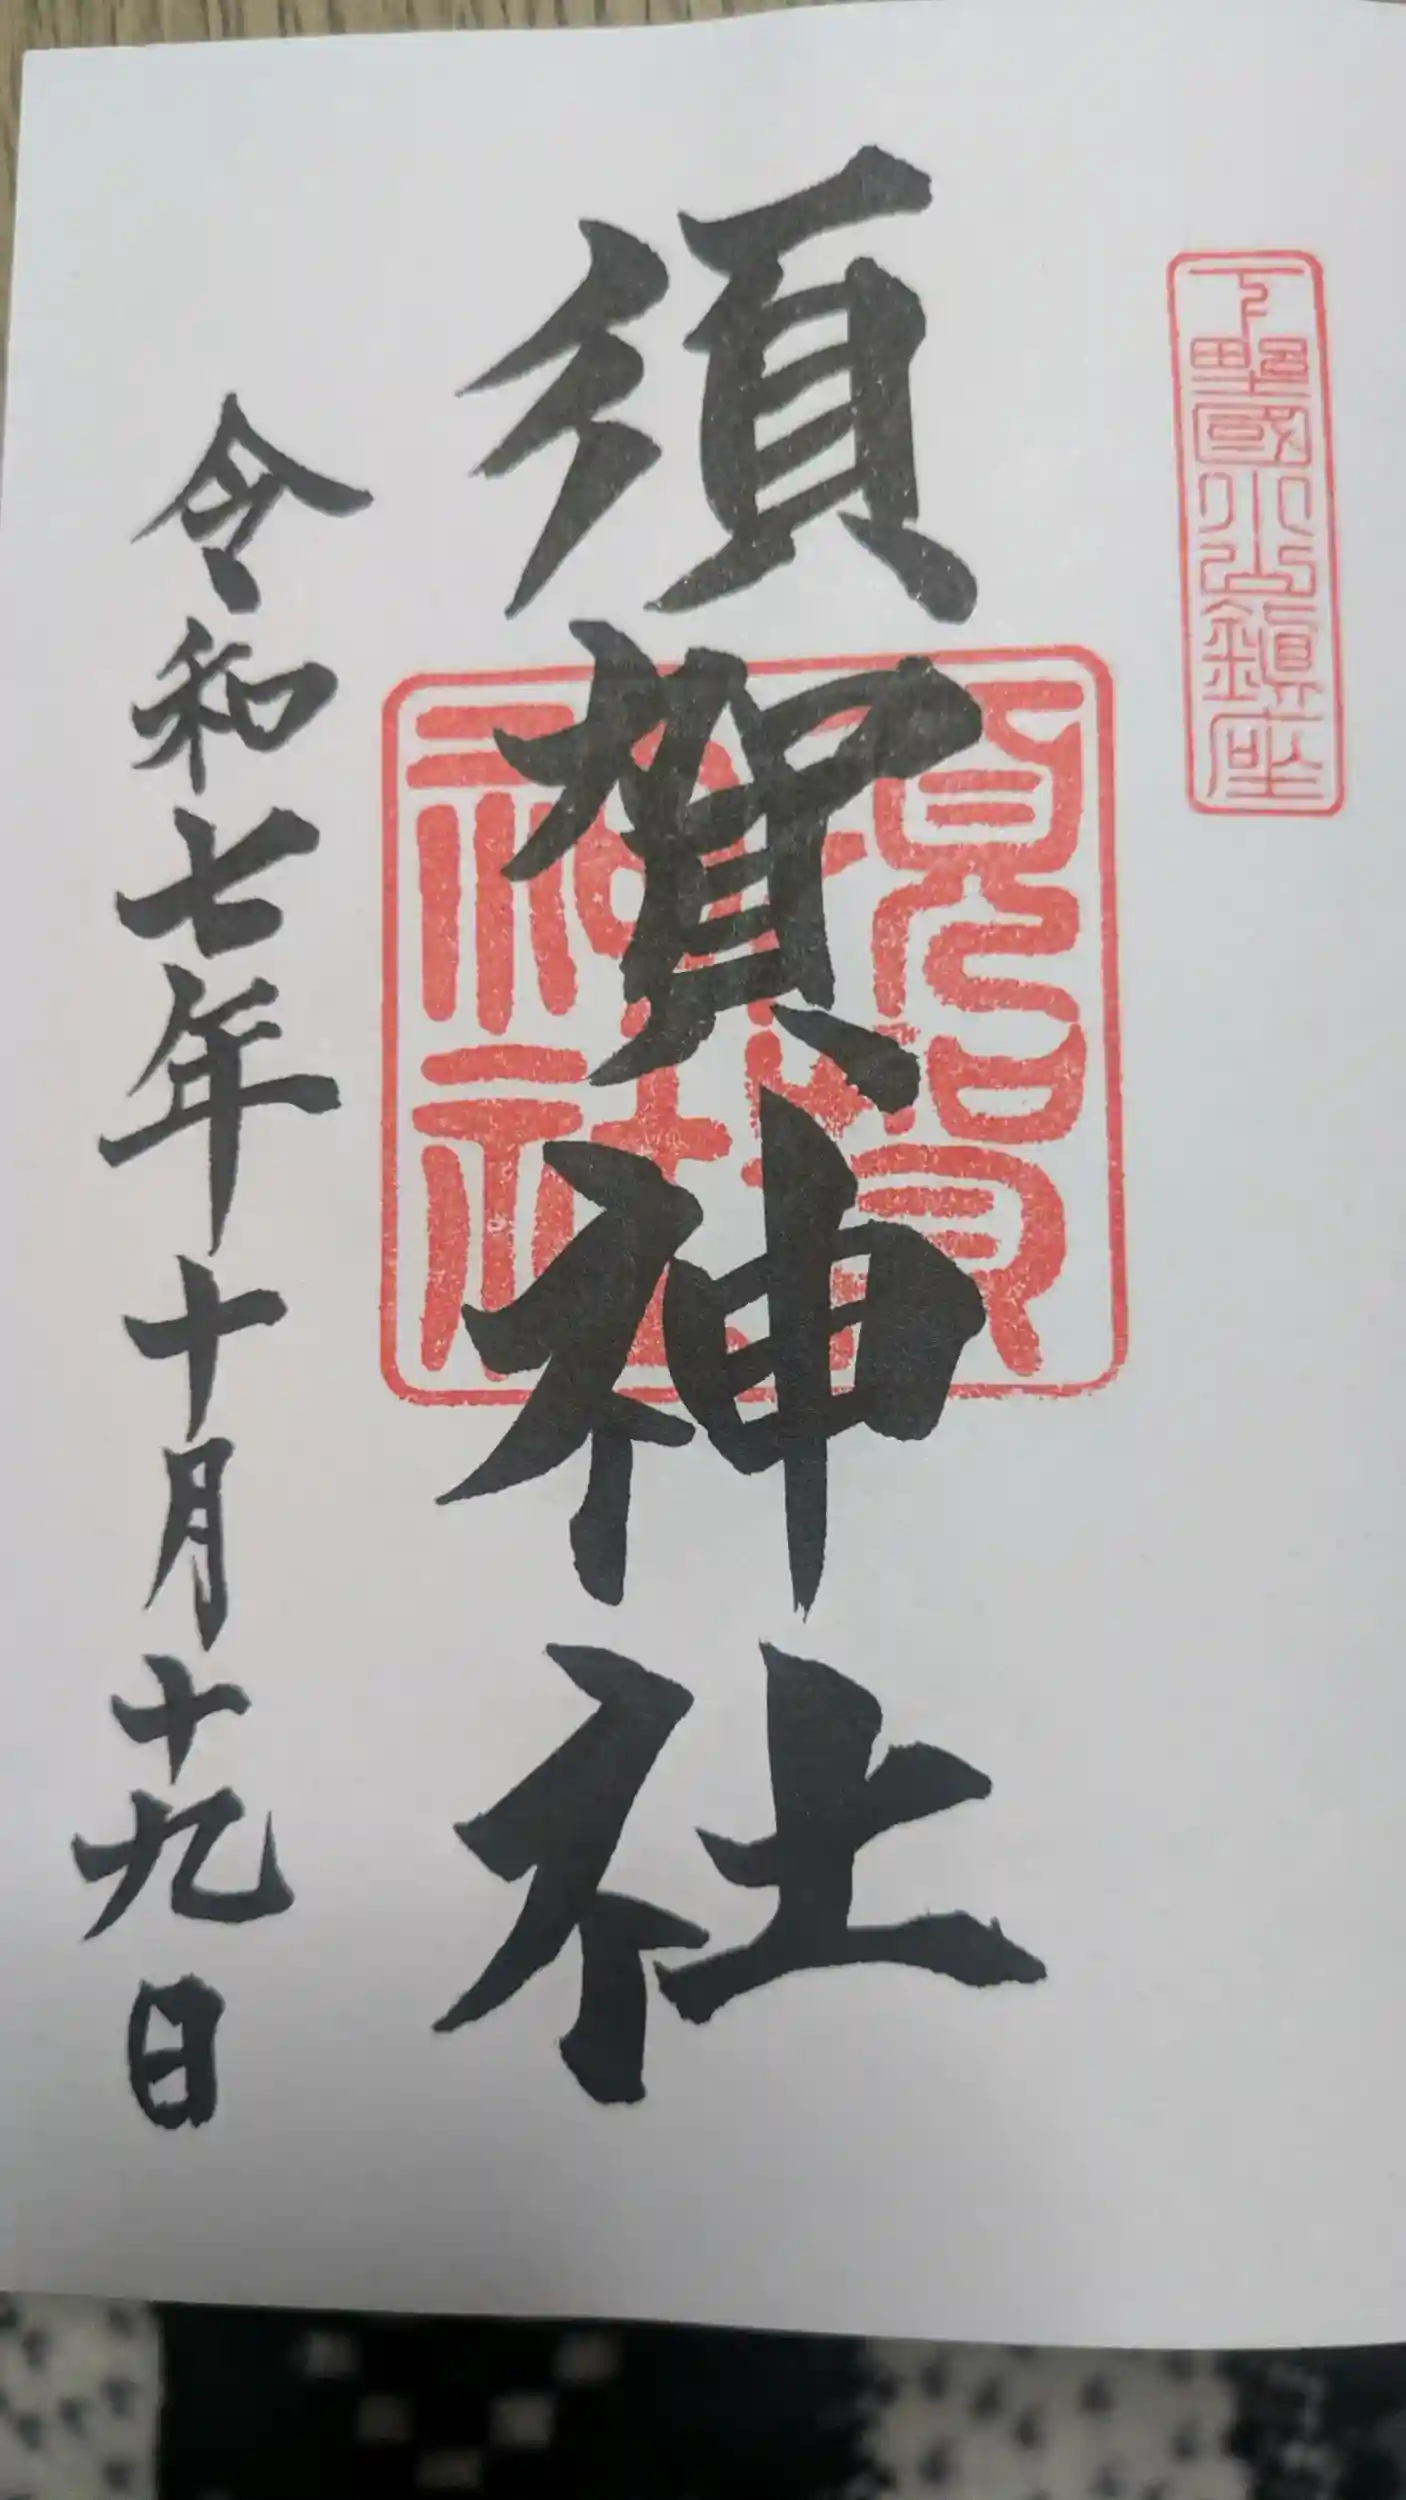 下野國小山鎮座
須賀神社
須賀
神社
令和七年十月十九日